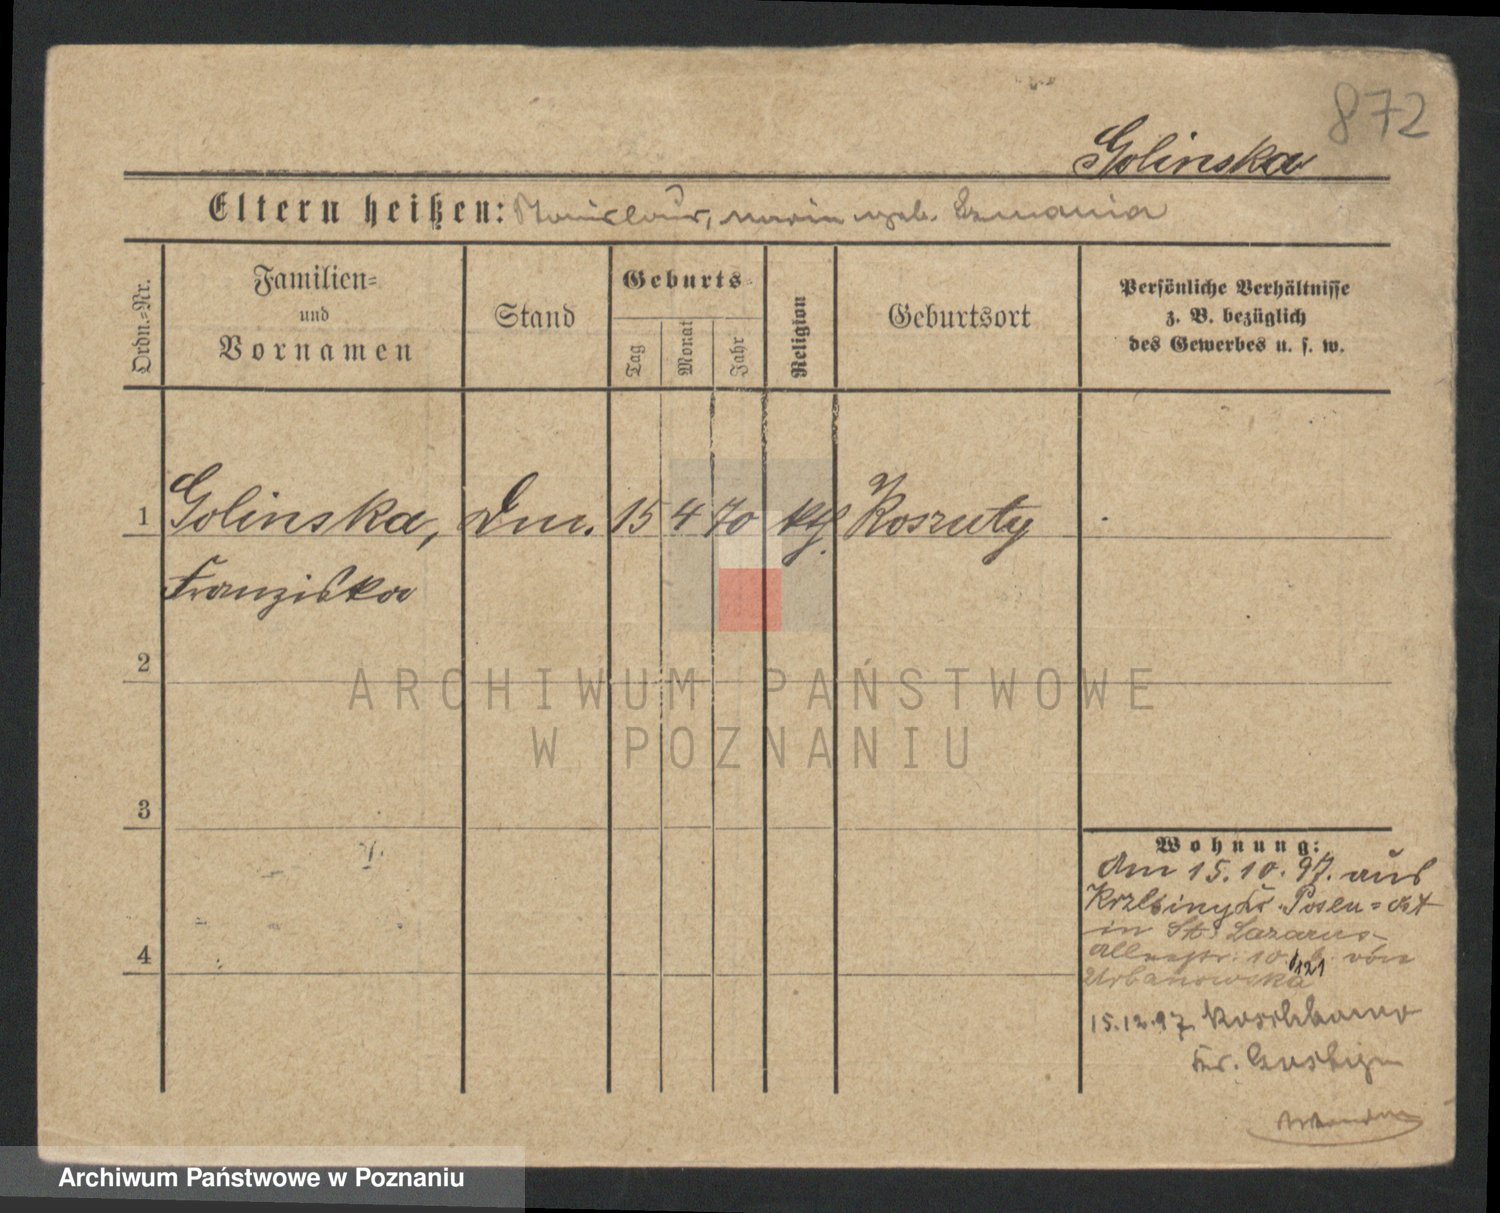 872
Golinska
Eltern heißen: Stanislaus, Maria geb. Szmania
Ordn.=Nr.
Familien=
und
Vornamen
Stand
Geburts=
Tag
Monat
Jahr
Religion
Geburtsort
Persönliche Verhältnisse
z. B. bezüglich
des Gewerbes u. s. w.
1 Golinska, Dm. 15 4 70 kth. Koszuty
Franziska
2
ARCHIWUM PAŃSTWOWE
W POZNANIU
3
4
Wohnung:
Am 15.10.97. aus
Posen=Ost
in St. Lazarus
10. b. von
Urbanowska
121
15.12.97.
Kr.
Archiwum Państwowe w Poznaniu